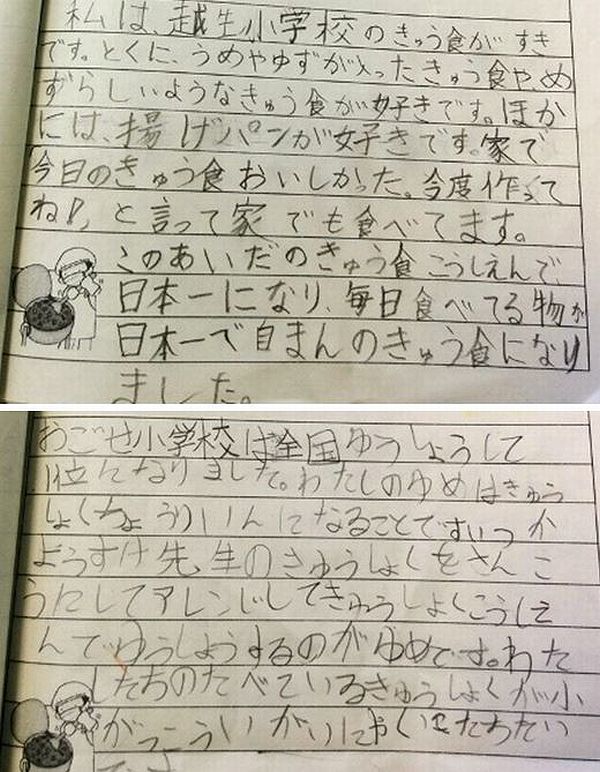 私は、越生小学校のきゅう食がすき
です。とくに、うめやゆずが入ったきゅう食や、め
ずらしいようなきゅう食が好きです。ほか
には、揚げパンが好きです。家で
今日のきゅう食おいしかった。今度作って
ね!、と言って家でも食べてます。
このあいだのきゅう食こうしえんで、
日本一になり、毎日食べてる物が
日本一で自まんのきゅう食になり
ました。
おごせ小学校は全国ゆうしょうして
1位になりました。わたしのゆめはきゅう
しょくちょうりいんになることです。いつか
ようすけ先生のきゅうしょくをさんこ
うにしてアレンジしてきゅうしょくこうしえ
んでゆうしょうするのがゆめです。わた
したちのたべているきゅうしょくが小
がっこういがいにやくにたちたい
です